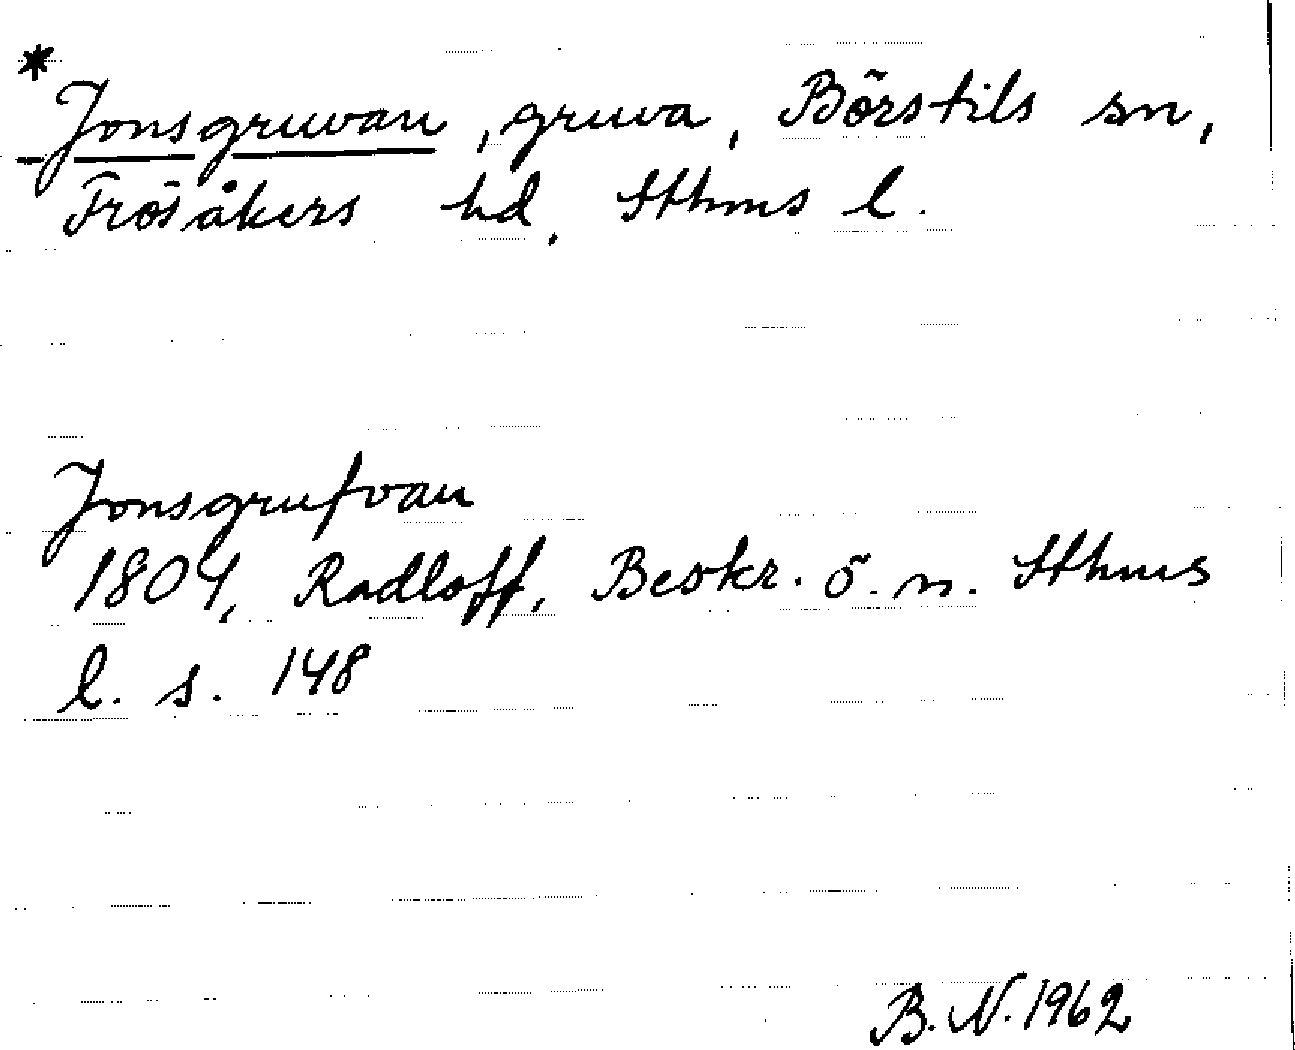 *
Jonsgruvan, gruva, Börstils sn,
Frösåkers hd, Sthms l.
Jonsgrufvan
1804, Radloff, Beskr. ö. n. Sthms
l. s. 148
B. N. 1962